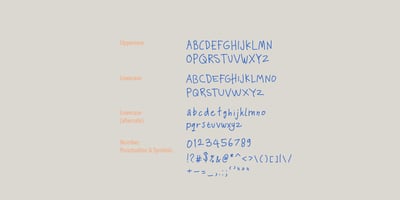 Uppercase
ABCDEFGHIJKLMN
OPQRSTUVWXYZ
Lowercase
ABCDEFGHIJKLMNO
PQRSTUVWXYZ
Lowercase
(alternate)
abcdefghijklmno
pqrstuvwxyz
Number,
Punctuation & Symbols
0123456789
!?#$%&@*^<>\()[]|\/
+-=_,.:;